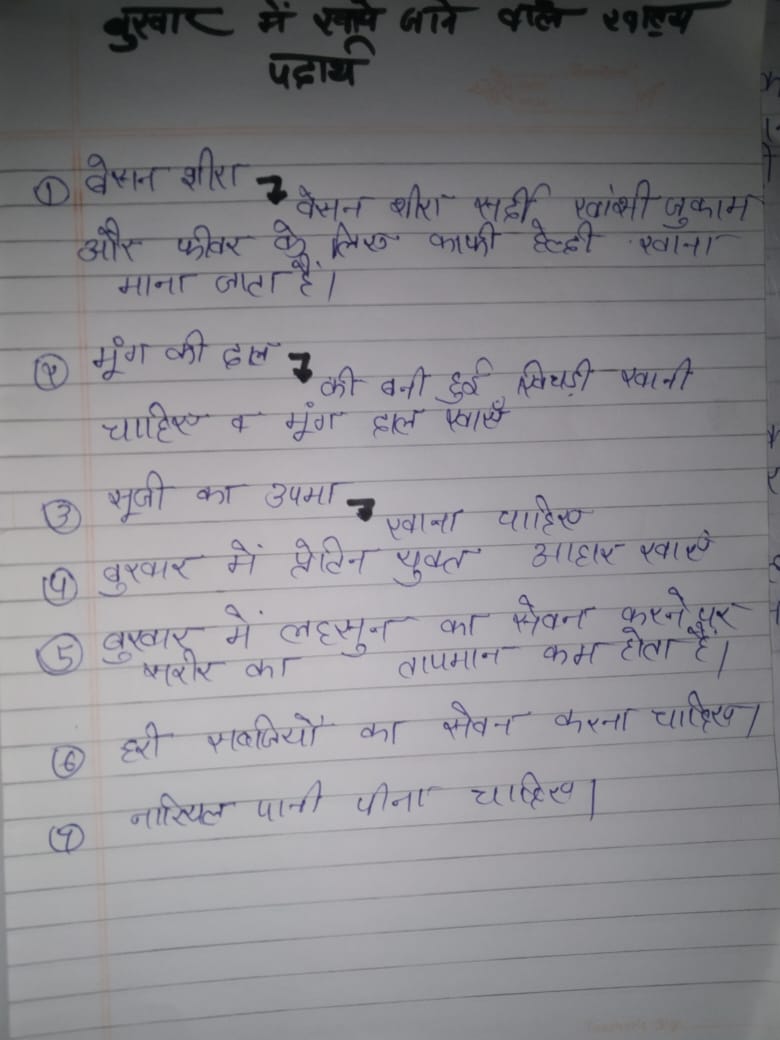 बुखार में खाये जाने वाले खाद्य
पदार्थ
① बेसन शीरा →
बेसन शीरा सर्दी खांसी जुकाम
और फीवर के लिए काफी हेल्दी खाना
माना जाता है।
② मूंग की दाल →
की बनी हुई खिचड़ी खानी
चाहिए व मूंग दाल खाएँ
③ सूजी का उपमा →
खाना चाहिए
④ बुखार में प्रोटिन युक्त आहार खाएं
⑤ बुखार में लहसुन का सेवन करने पर
शरीर का तापमान कम होता है।
⑥ हरी सबजियों का सेवन करना चाहिए।
⑦ नारियल पानी पीना चाहिए।